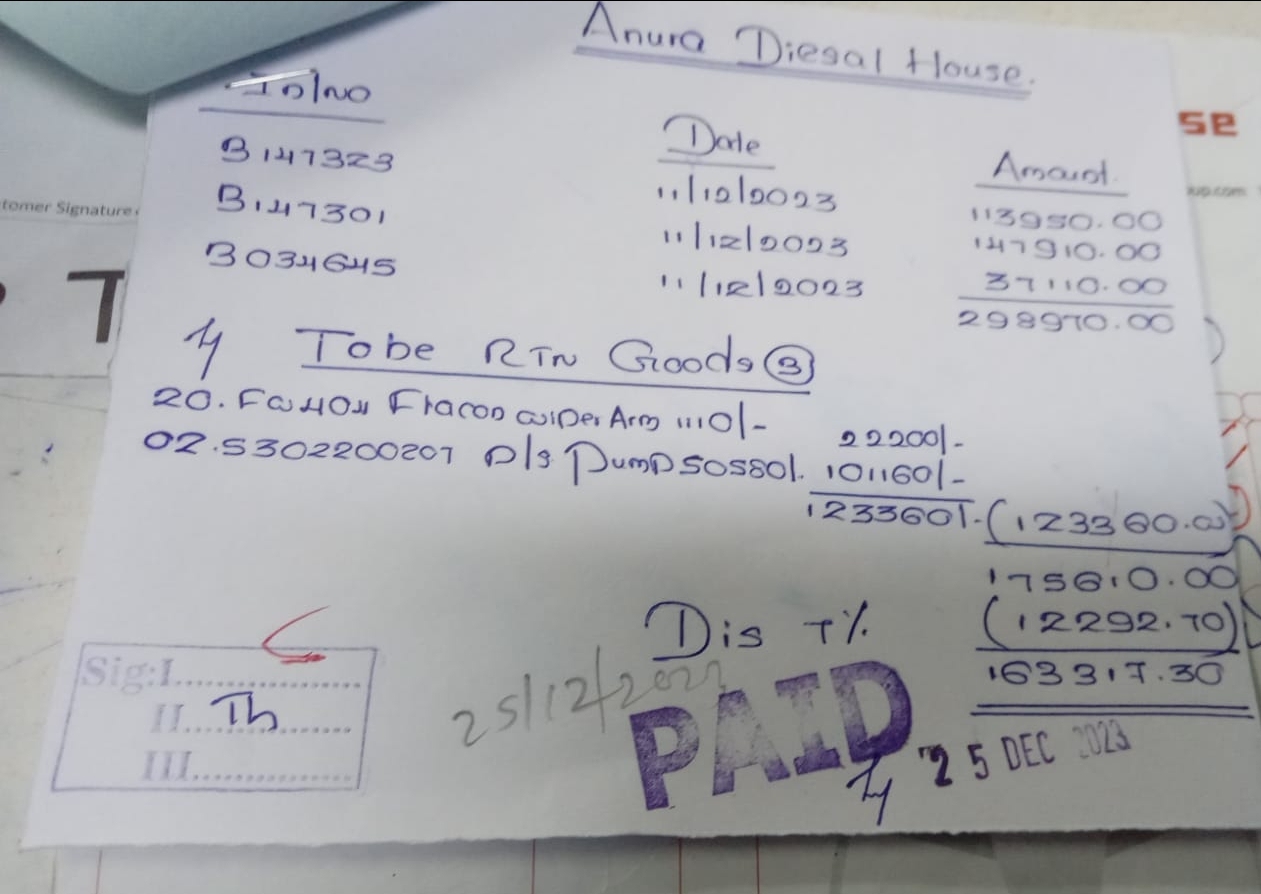 Anura Diesal House.
In/No Date Amount.
B147323 11/12/2023 113950.00
B147301 11/12/2023 147910.00
B034645 11/12/2023 37110.00
298970.00
To be RTN Goods 3
20. Wiper Arm 1110/- 22200/-
02. 5302200207 D/s Pump 50580/. 101160/-
123360/- (123360.00)
175610.00
Dis 7% (12292.70)
163317.30
Sig:I....................
II.. Th ............
III....................
25/12/2023
PAID
25 DEC 2023
se
up.com
tomer Signature
T